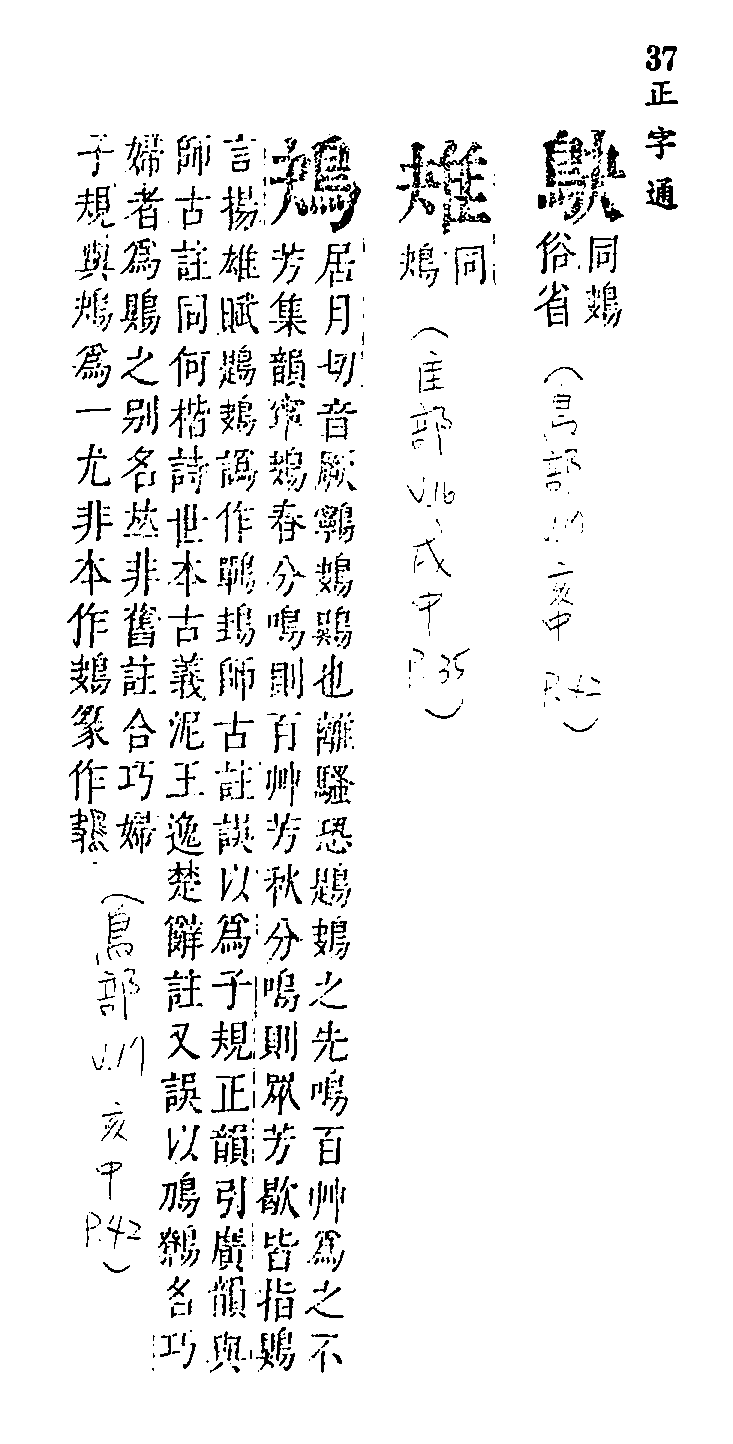 37正字通
鴃 同鴂
俗省 (鳥部 V.17 亥中 P.42)
同
鴂 (隹部 V.16、戌中 P.35)
鴂 居月切音厥鸋鴂鶪也離騷恐鶗鴂之先鳴百艸爲之不
芳集韻寧鴂春分鳴則百艸芳秋分鳴則眾芳歇皆指鶪
言揚雄賦鶗鴂譌作鷤䳏師古註誤以爲子規正韻引廣韻與
師古註同何楷詩世本古義泥王逸楚辭註又誤以鳭鷯名巧
婦者爲鶪之别名𠀤非舊註合巧婦
子規與鴂爲一尤非本作鴂篆作
(鳥部 V.17 亥中 P.42)